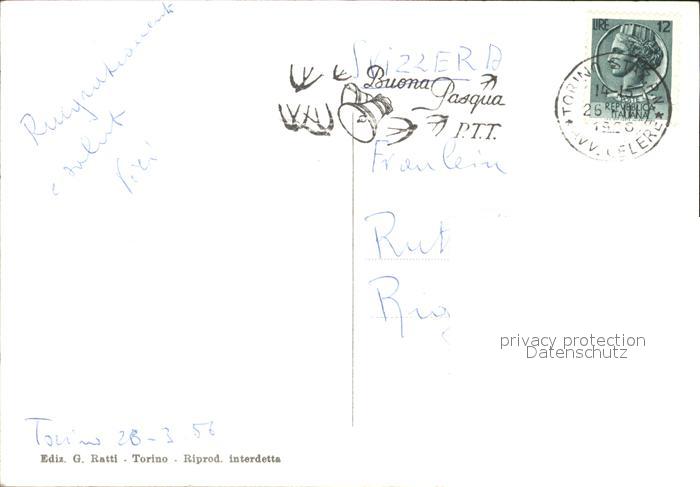 Ringraziamenti
e saluti
SVIZZERA
Buona
Pasqua
P.T.T.
LIRE 12
REPUBBLICA
ITALIANA
Fräulein
privacy protection
Datenschutz
Torino 28-3 56
Ediz. G. Ratti - Torino - Riprod. interdetta